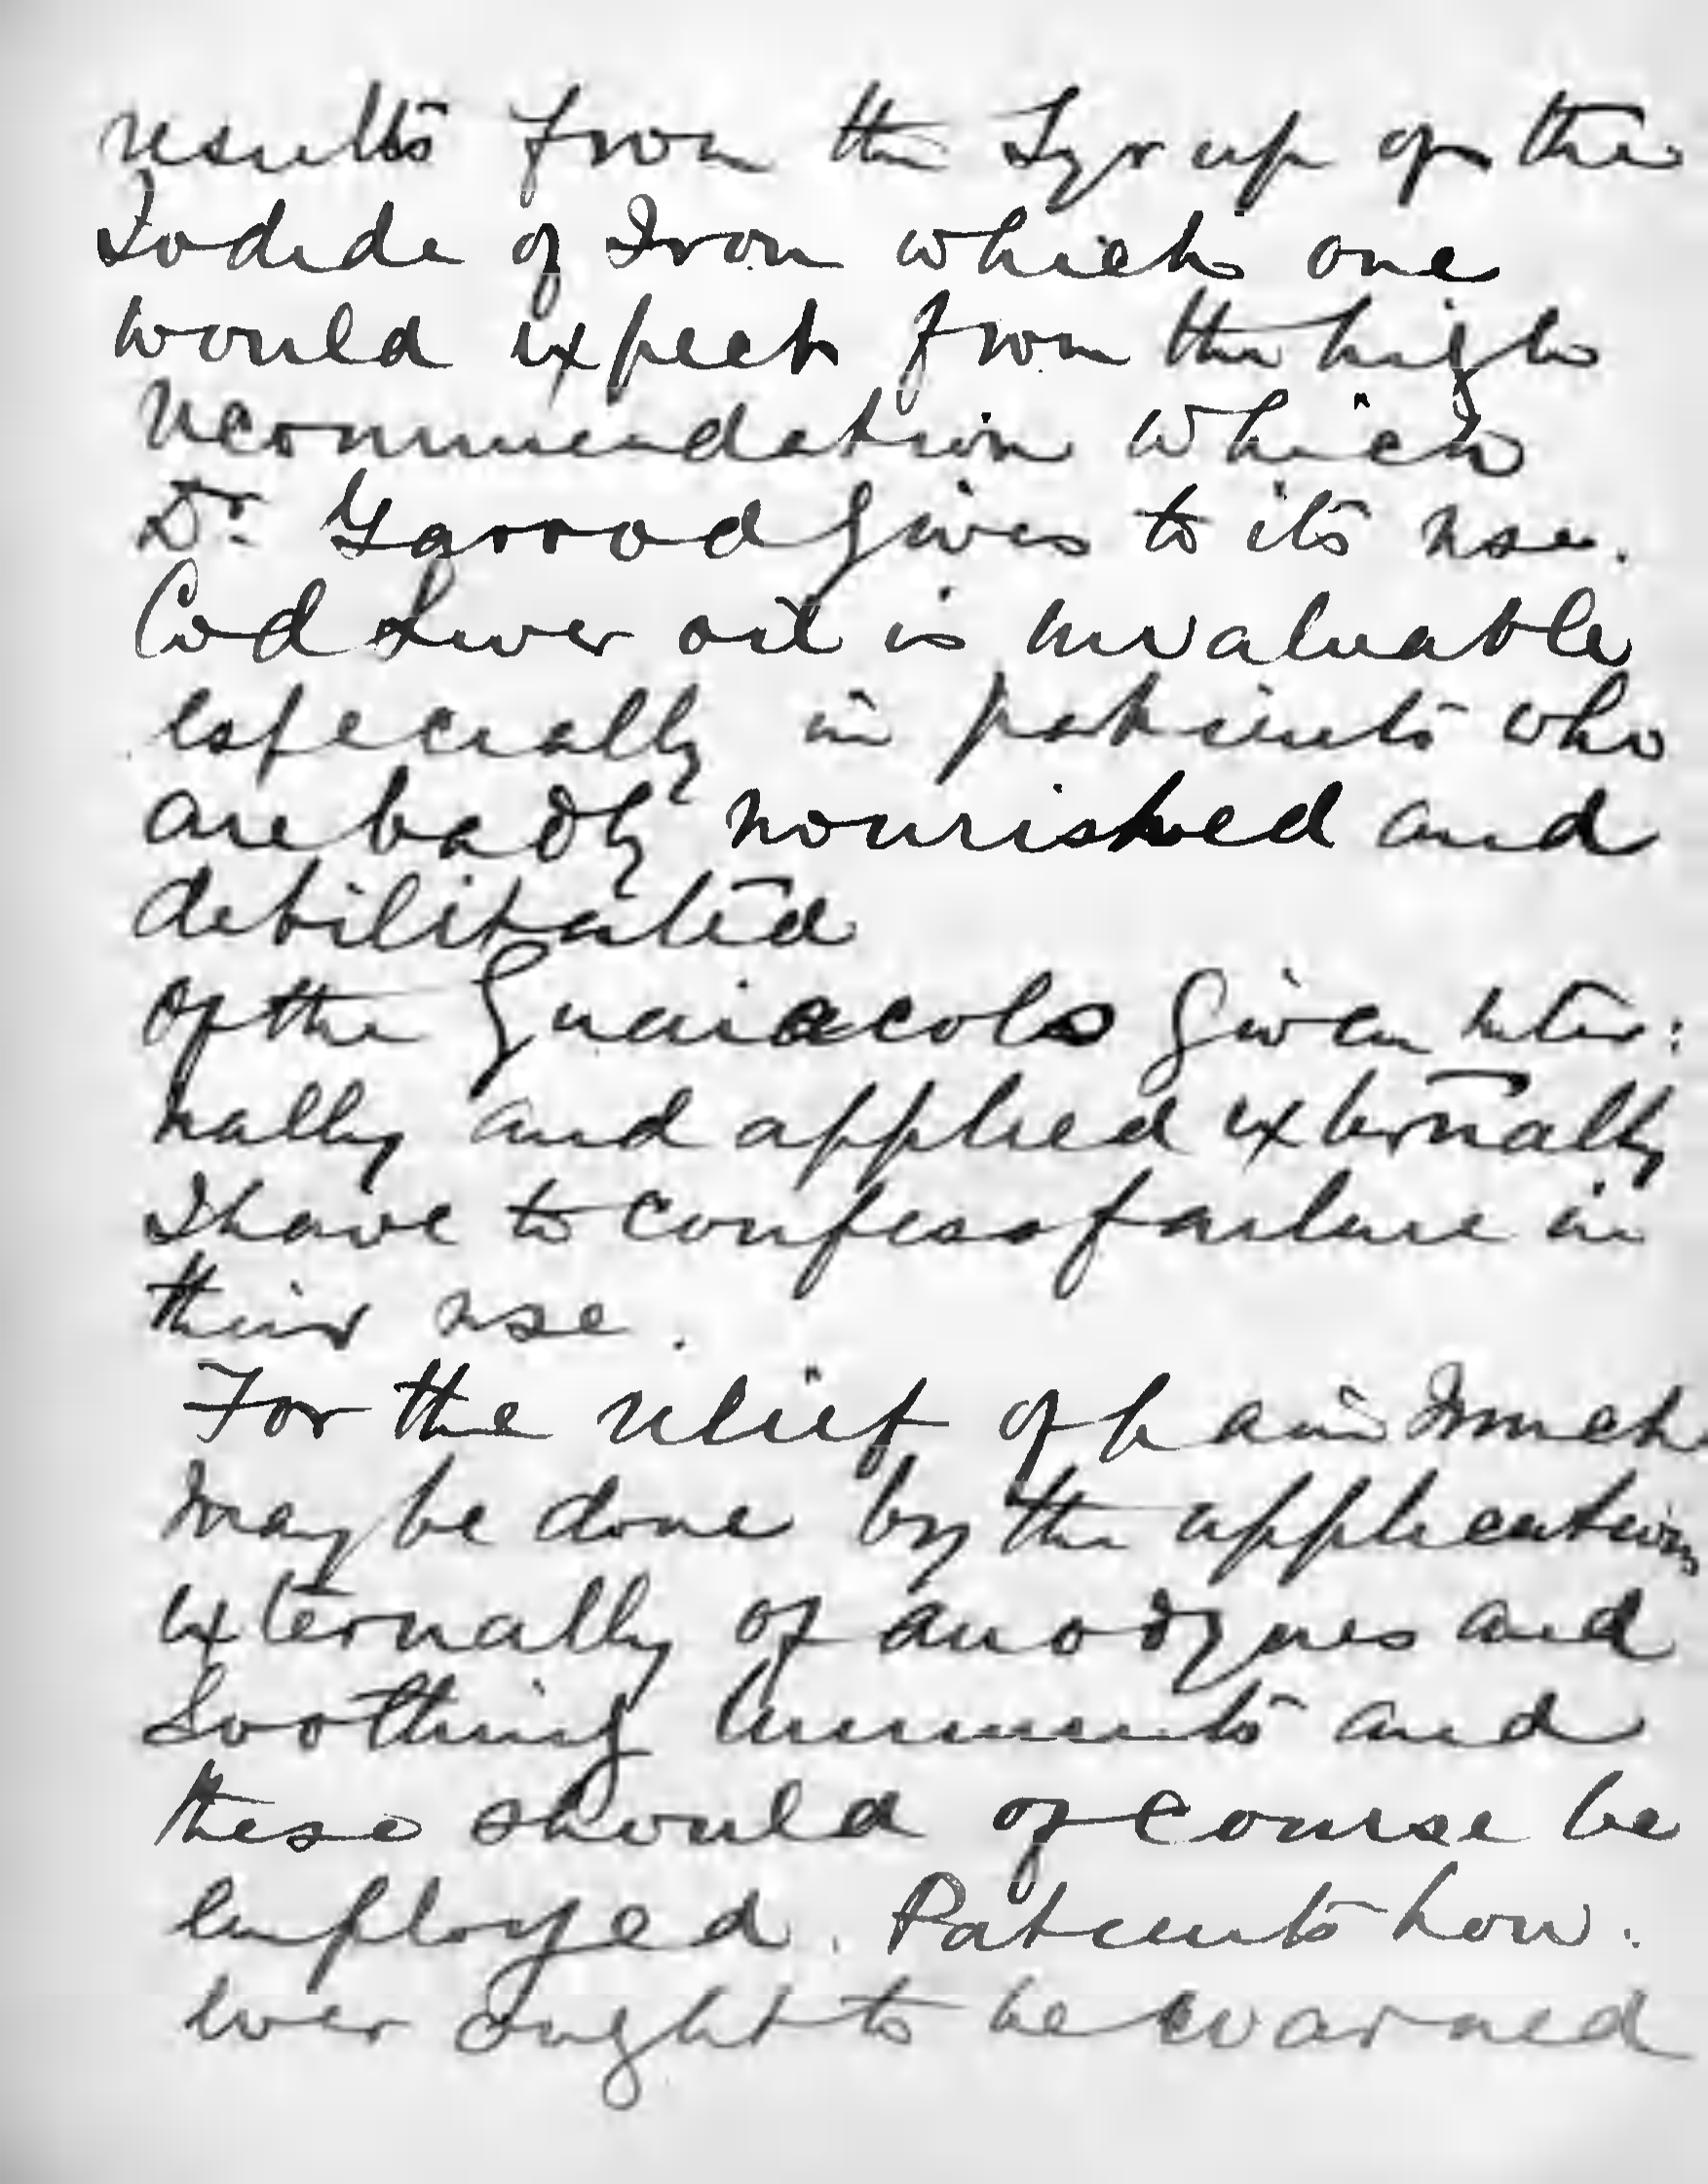 results from the Syrup of the
Iodide of Iron which one
would expect from the high
recommendation which
Dr. Garrod gives to its use.
Cod Liver oil is invaluable
especially in patients who
are badly nourished and
debilitated
Of the Guaiacols given inter:
nally and applied externally
I have to confess failure in
their use.
For the relief of pain much
may be done by the application
externally of anodynes and
Soothing liniments and
these should of course be
employed. Patients how:
ever ought to be warned